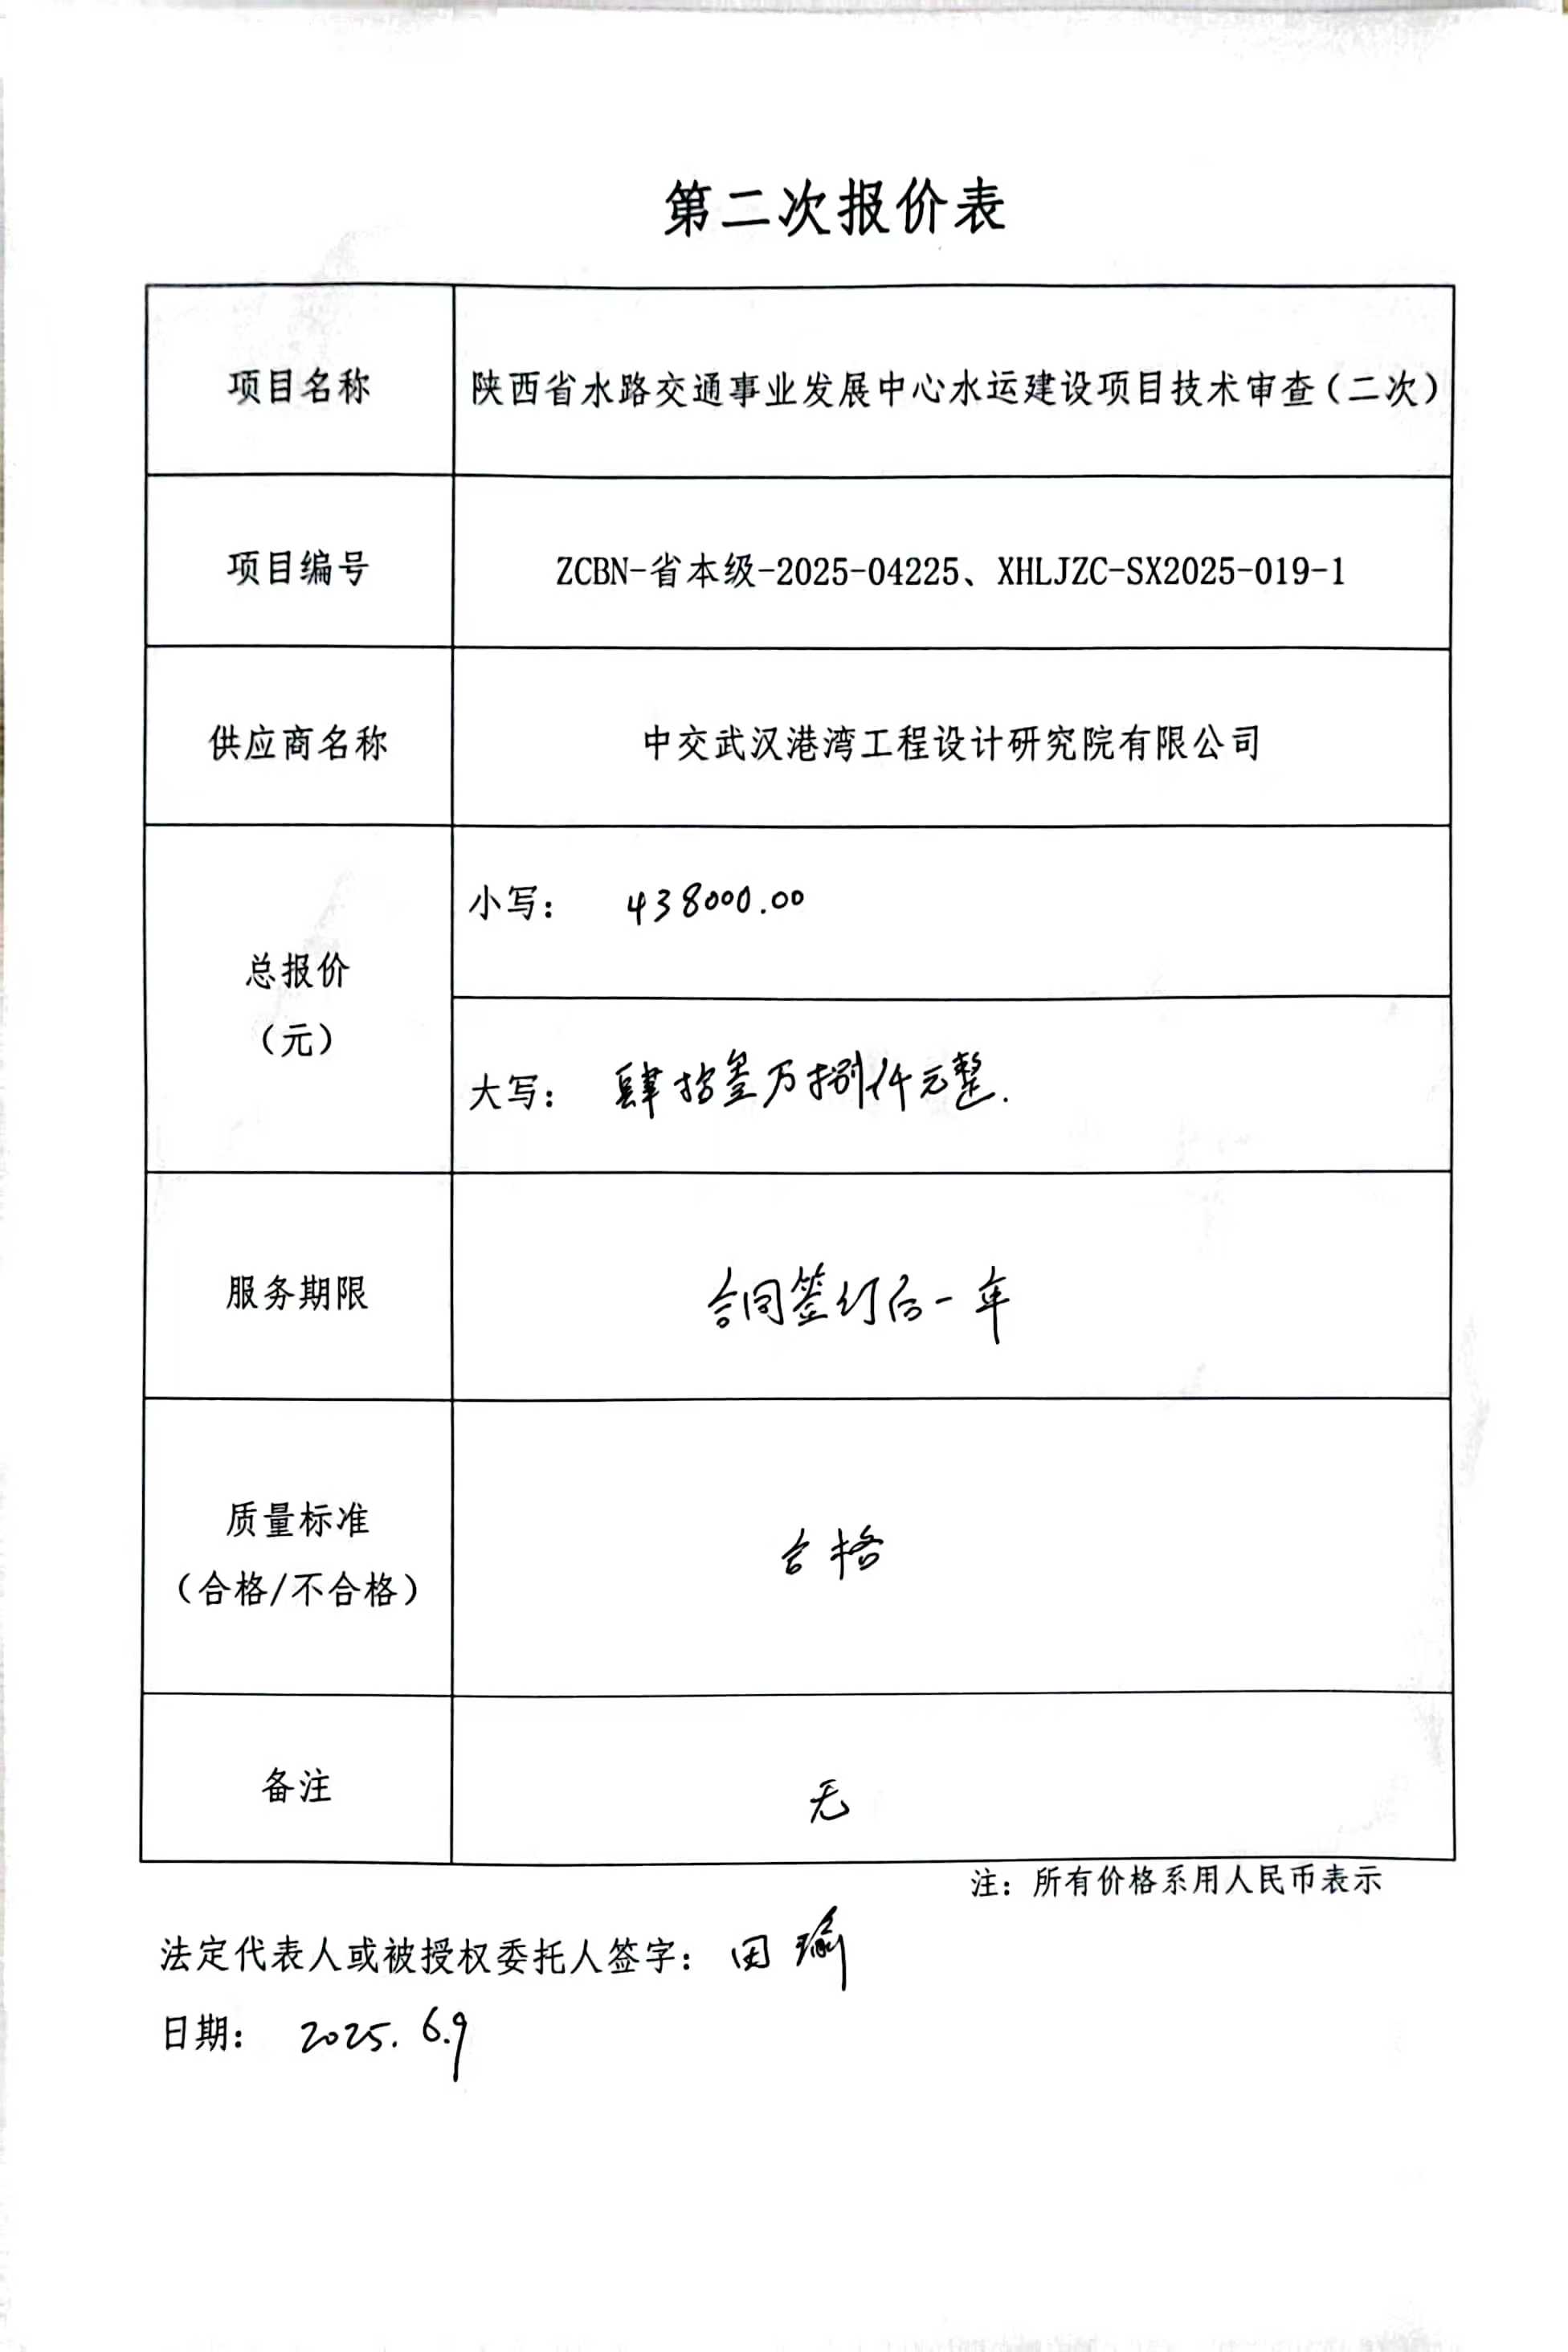 第二次报价表
项目名称
陕西省水路交通事业发展中心水运建设项目技术审查(二次)
项目编号
ZCBN-省本级-2025-04225、XHLJZC-SX2025-019-1
供应商名称
中交武汉港湾工程设计研究院有限公司
总报价
(元)
小写: 438000.00
大写: 肆拾叁万捌仟元整.
服务期限
合同签订后一年
质量标准
(合格/不合格)
合格
备注
无
注:所有价格系用人民币表示
法定代表人或被授权委托人签字: 田瑜
日期: 2025.6.9